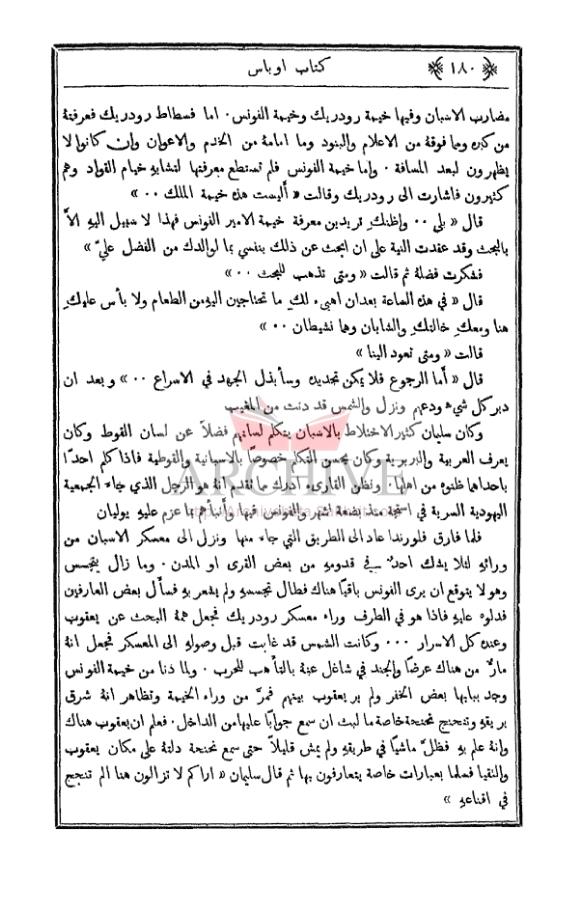 ﴿ ١٨٠ ﴾ كتاب اوباس
مضارب الاسبان وفيها خيمة رودريك وخيمة الفونس . اما فسطاط رودريك فعرفتهُ
من كبره وما فوقهُ من الاعلام والبنود وما امامهُ من الخدم والاعوان وان كانوا لا
يظهرون لبعد المسافة . واما خيمة الفونس فلم تستطع معرفتها لتشابه خيام القواد وهم
كثيرون فاشارت الى رودريك وقالت « أليست هذه خيمة الملك . . »
قال « بلى . . واظنكِ تريدين معرفة خيمة الامير الفونس فهذا لا سبيل اليهِ الاَّ
بالبحث وقد عقدت النية على ان ابحث عن ذلك بنفسي بما لوالدك من الفضل عليَّ »
فشكرت فضلهُ ثم قالت « ومتى تذهب للبحث . . »
قال « في هذه الساعة بعد ان اهيىء لكِ ما تحتاجين اليهِ من الطعام ولا بأس عليكِ
هنا ومعكِ خالتكِ والشابان وهما نشيطان . . »
قالت « ومتى تعود الينا »
قال « أما الرجوع فلا يمكن تحديده وسأبذل الجهد في الاسراع . . » وبعد ان
دبر كل شيء ودعهم ونزل والشمس قد دنت من المغيب
وكان سليمان كثير الاختلاط بالاسبان يتكلم لسانهم فضلاً عن لسان القوط وكان
يعرف العربية والبربرية وكان يحسن التكلم خصوصاً بالاسبانية والقوطية فاذا كلم احداً
باحداهما ظنوهُ من اهلها . ونظن القارىء ادرك مما تقدم انهُ هو الرجل الذي جاء الجمعية
اليهودية السرية في استجة منذ بضعة اشهر والفونس فيها وأنبأهم بما عزم عليهِ يوليان
فلما فارق فلورندا عاد الى الطريق التي جاء منها ونزل الى معسكر الاسبان من
ورائهِ لئلا يشك احدٌ في قدومهِ من بعض القرى او المدن . وما زال يتجسس
وهو لا يتوقع ان يرى الفونس باقياً هناك فطال تجسسهُ ولم يشعر بهِ فسأل بعض العارفين
فدلوهُ عليهِ فاذا هو في الطرف وراء معسكر رودريك فجعل همهُ البحث عن يعقوب
وعنده كل الاسرار . . . وكانت الشمس قد غابت قبل وصولهِ الى المعسكر فجعل انهُ
مارٌّ من هناك عرضاً والجند في شاغل عنهُ بالتأهب للحرب . ولما دنا من خيمة الفونس
وجد ببابها بعض الخفر ولم يرَ يعقوب بينهم فمرَّ من وراء الخيمة وتظاهر انهُ شرق
بريقهِ وتنحنح نحنحة خاصة ما لبث ان سمع جواباً عليها من الداخل . فعلم ان يعقوب هناك
وانهُ علم بهِ فظلَّ ماشياً في طريقهِ ولم يمش قليلاً حتى سمع نحنحة دلتهُ على مكان يعقوب
والتقيا فسلما بعبارات خاصة يتعارفون بها ثم قال سليمان « اراكم لا تزالون هنا الم تنجح
في اقناعهِ »
ARCHIVE